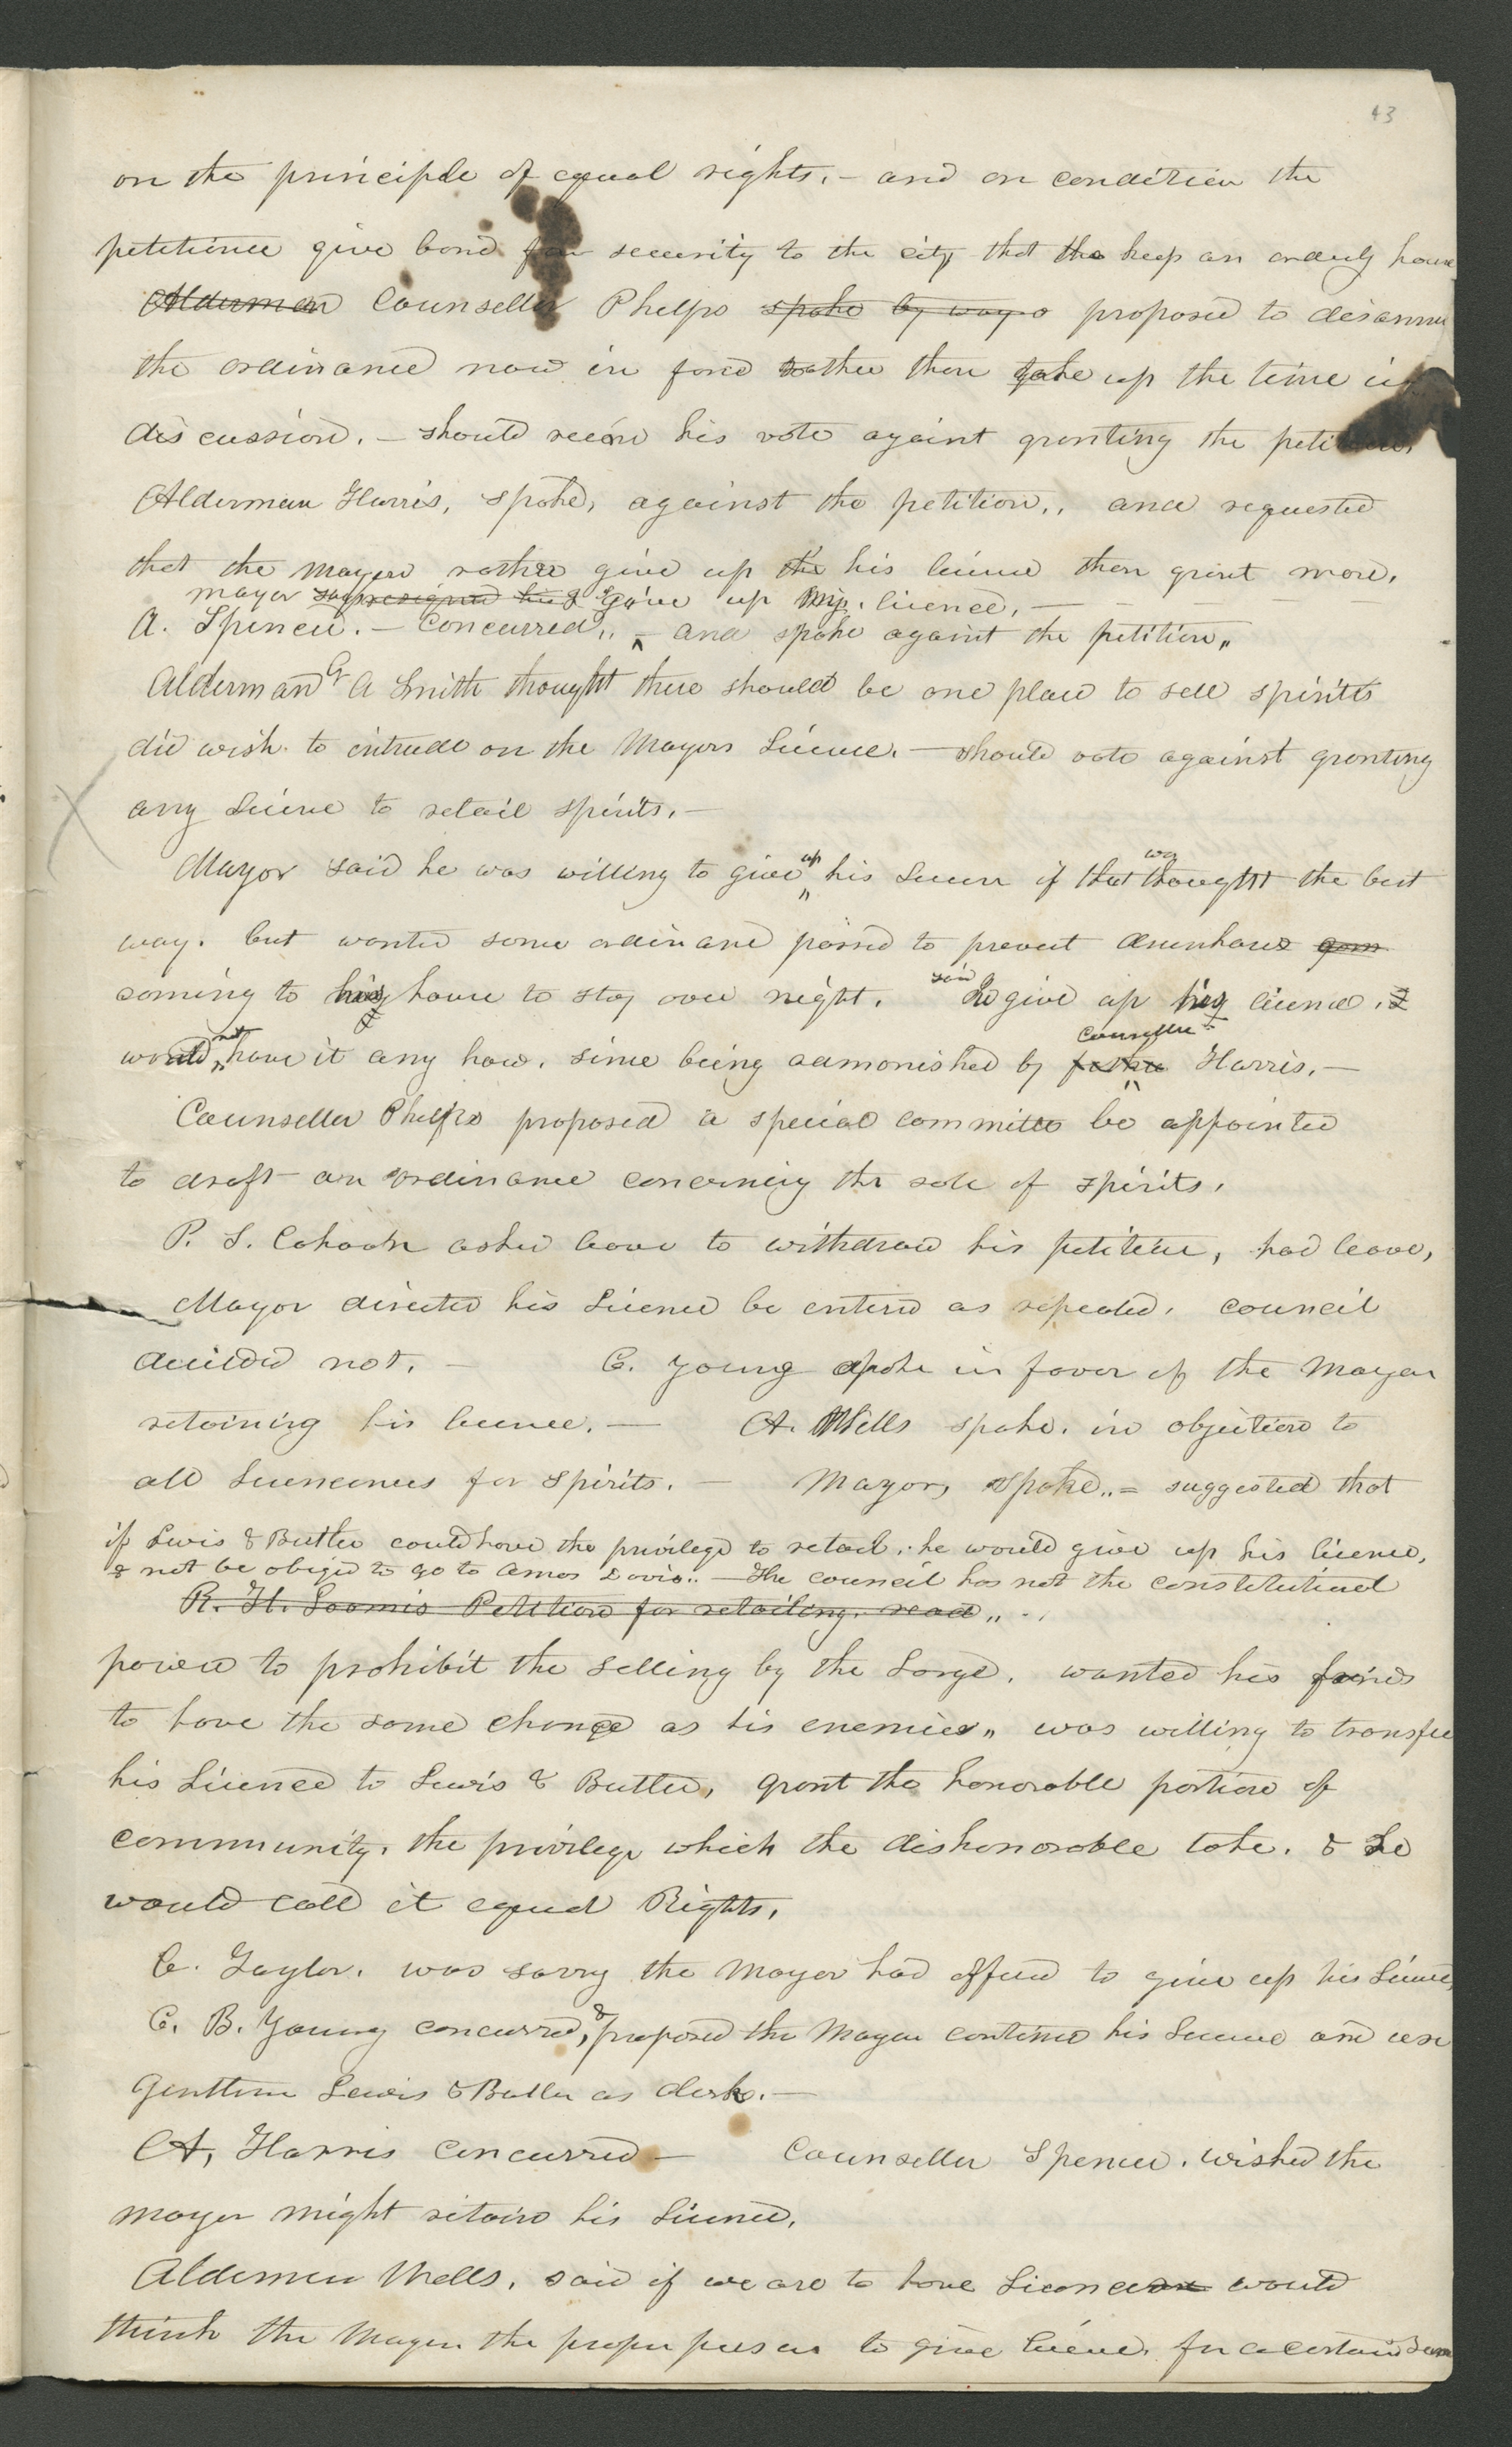 43
on the principle of equal rights. — and on condition the
petitioner give bond for security to the city that the keep an orderly house
Alderman Counseller Phelps spoke by way o proposed to disannu
the ordinance now in force rather then take up the time in
discussion. — should record his vote againt granting the petition.
Alderman Harris, spoke, against the petition,, and requested
that the Mayor rather give up the his licence then grant more.
mayor resigned his & gave up his licence. —
A. Spencer. — Concurred,, — and spoke againt the petition,,
Alderman G A Smith thought there should be one place to sell spirits
did wish to intrude on the Mayors Licence. — should vote against granting
any Licence to retail spirits. —
Mayor said he was willing to give up his Licence if that was thought the best
way. but wanted some ordinance passed to prevent drunkards
coming to his house to stay over night. said He give up his licence. &
would not have it any how. since being admonished by father Counseller Harris. —
Counseller Phelps proposed a special committee be appointed
to draft an ordinance concerning the sale of spirits.
P. S. Cahoon asked leave to withdraw his petition, had leave,
Mayor directed his Licence be entered as repealed. council
decided not. — C. Young spoke in favor of the Mayor
retaining his licence. — A. Wells spoke. in objection to
all Licencences for spirits. — Mayor, spoke,, = suggested that
if Lewis & Butler could have the privilege to retail. he would give up his licence,
& not be obliged to go to Amos Davis.. — The council has not the constitutional
R. H. Loomis Petition for retailing. read,, ..
power to prohibit the selling by the Large. wanted his friends
to have the same chance as his enemies,, was willing to transfer
his Licence to Lewis & Butler, grant the honorable portion of
community. the privilege which the dishonorable take. & he
would call it equal Rights.
C. Taylor. was sorry the Mayor had offered to give up his Licence,
C. B. Young concurred, & proposed the Mayor continue his Licence and use
Gentlemen Lewis & Butler as clerks. —
A, Harris concurred — Counseller Spencer. wished the
mayor might retain his Licence.
Aldermen Wells. said if we are to have Licences would
think the Mayor the proper person to give licence. for a certain Sum